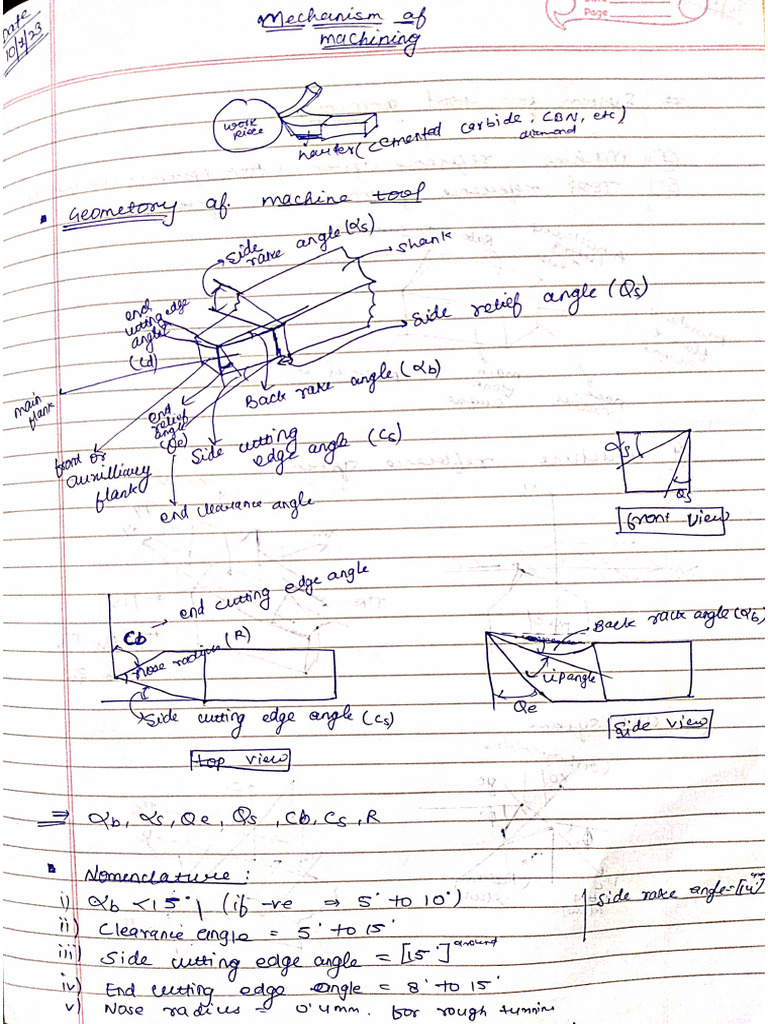 Date
10/7/23
Date
Page
Mechanism of
machining
work
piece
(cemented carbide, CBN, etc)
diamond
Geometory of machine tool
Side
rake angle (αs)
shank
end
cutting edge
angle
(Cd)
Side relief angle (Qs)
main
flank
Back rake angle (αb)
end
relief
angle
(Qe)
Side cutting
edge angle (Cs)
front or
auxilliary
flank
end clearance angle
αs
Qs
front view
end cutting edge angle
Cb
Nose radius (R)
Side cutting edge angle (Cs)
top view
Back rack angle (αb)
lip angle
Qe
Side view
⇒ αb, αs, Qe, Qs, Cb, Cs, R
Nomenclature:
i) αb <15° (if -ve ⇒ 5° to 10°)
side rake angle =
ii) Clearance angle = 5° to 15°
iii) Side cutting edge angle = [15°] around
iv) End cutting edge angle = 8° to 15°
v) Nose radius = 0.4mm. for rough